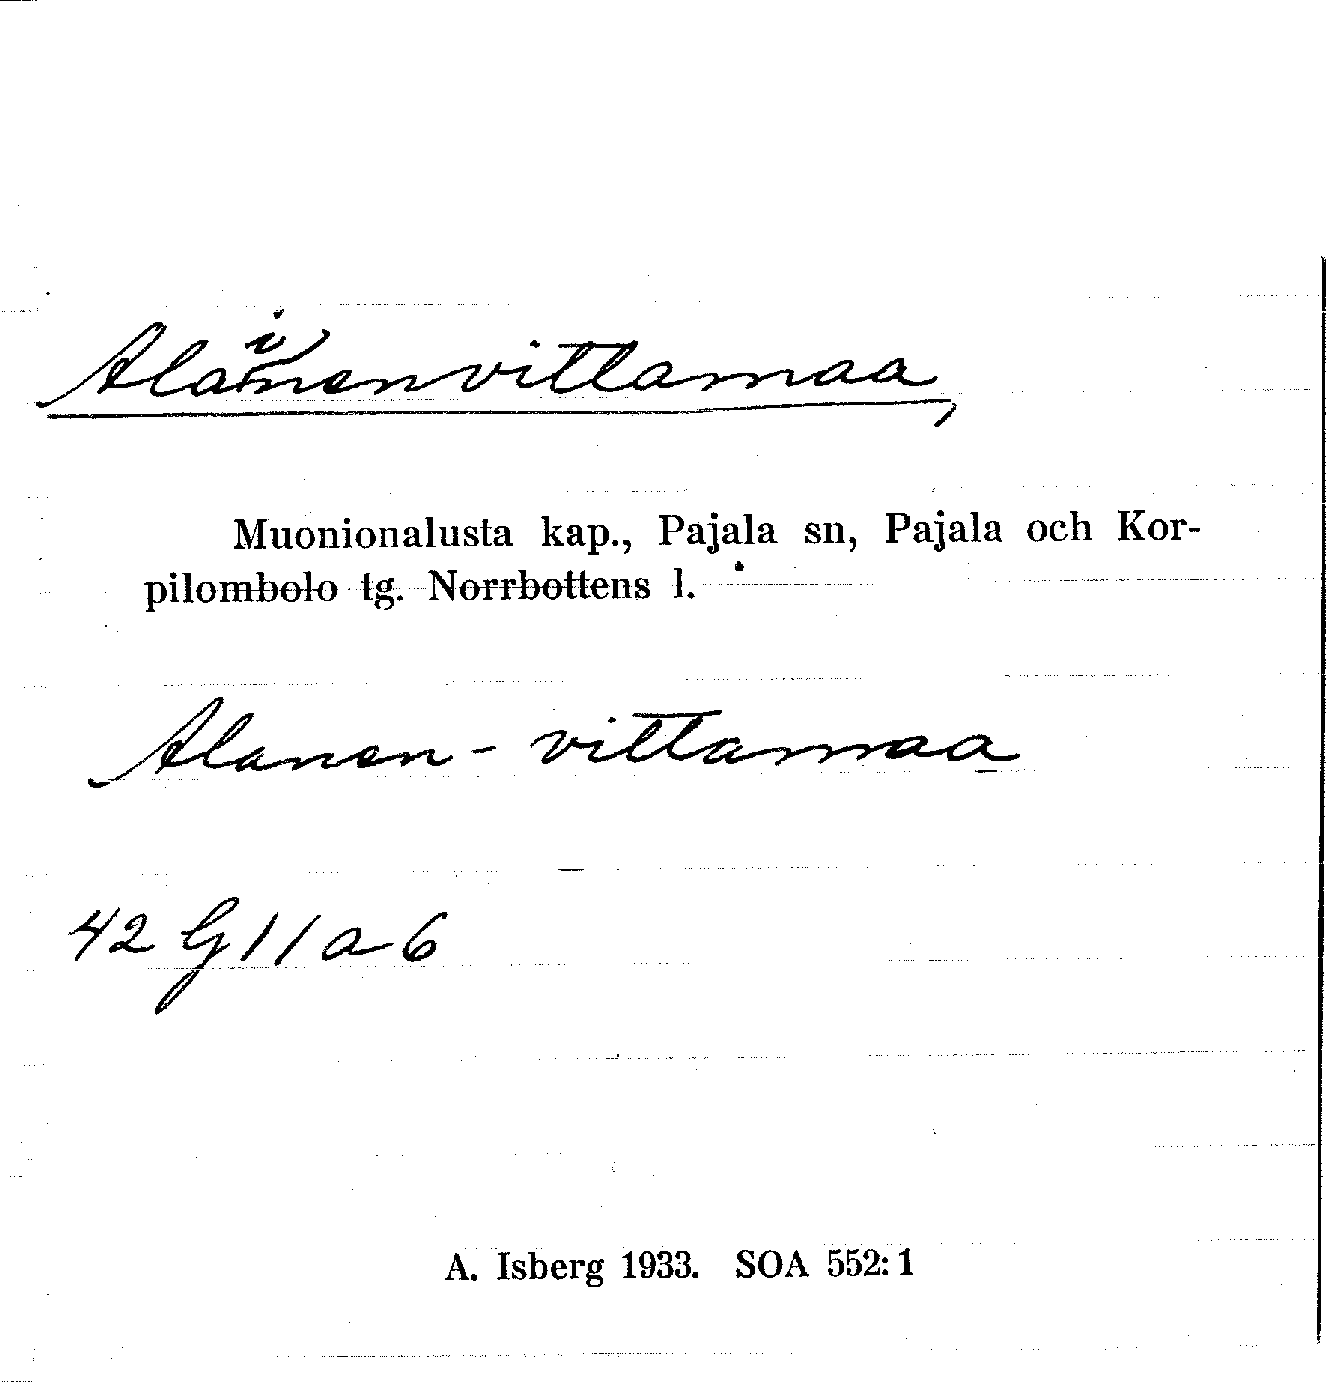 Alainenvittamaa,
Muonionalusta kap., Pajala sn, Pajala och Kor-
pilombolo tg. Norrbottens l.
Alanen-vittamaa
42 G 11 a 6
A. Isberg 1933. SOA 552:1